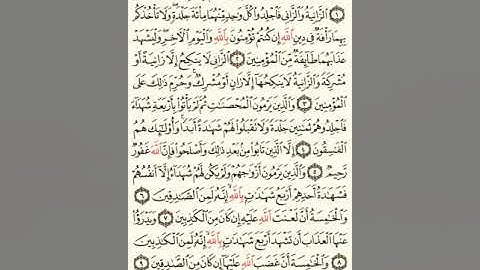 ١ ٱلزَّانِيَةُ وَٱلزَّانِي فَٱجْلِدُوا۟ كُلَّ وَٰحِدٍ مِّنْهُمَا مِا۟ئَةَ جَلْدَةٍ وَلَا تَأْخُذْكُم
بِهِمَا رَأْفَةٌ فِي دِينِ ٱللَّهِ إِن كُنتُمْ تُؤْمِنُونَ بِٱللَّهِ وَٱلْيَوْمِ ٱلْءَاخِرِ وَلْيَشْهَدْ
عَذَابَهُمَا طَآئِفَةٌ مِّنَ ٱلْمُؤْمِنِينَ ٢ ٱلزَّانِي لَا يَنكِحُ إِلَّا زَانِيَةً أَوْ
مُشْرِكَةً وَٱلزَّانِيَةُ لَا يَنكِحُهَآ إِلَّا زَانٍ أَوْ مُشْرِكٌ وَحُرِّمَ ذَٰلِكَ عَلَى
ٱلْمُؤْمِنِينَ ٣ وَٱلَّذِينَ يَرْمُونَ ٱلْمُحْصَنَٰتِ ثُمَّ لَمْ يَأْتُوا۟ بِأَرْبَعَةِ شُهَدَآءَ
فَٱجْلِدُوهُمْ ثَمَٰنِينَ جَلْدَةً وَلَا تَقْبَلُوا۟ لَهُمْ شَهَٰدَةً أَبَدًا وَأُو۟لَٰٓئِكَ هُمُ
ٱلْفَٰسِقُونَ ٤ إِلَّا ٱلَّذِينَ تَابُوا۟ مِنۢ بَعْدِ ذَٰلِكَ وَأَصْلَحُوا۟ فَإِنَّ ٱللَّهَ غَفُورٌ
رَّحِيمٌ ٥ وَٱلَّذِينَ يَرْمُونَ أَزْوَٰجَهُمْ وَلَمْ يَكُن لَّهُمْ شُهَدَآءُ إِلَّآ أَنفُسُهُمْ
فَشَهَٰدَةُ أَحَدِهِمْ أَرْبَعُ شَهَٰدَٰتٍۭ بِٱللَّهِ إِنَّهُۥ لَمِنَ ٱلصَّٰدِقِينَ ٦
وَٱلْخَٰمِسَةُ أَنَّ لَعْنَتَ ٱللَّهِ عَلَيْهِ إِن كَانَ مِنَ ٱلْكَٰذِبِينَ ٧ وَيَدْرَؤُا۟
عَنْهَا ٱلْعَذَابَ أَن تَشْهَدَ أَرْبَعَ شَهَٰدَٰتٍۭ بِٱللَّهِ إِنَّهُۥ لَمِنَ ٱلْكَٰذِبِينَ
٨ وَٱلْخَٰمِسَةَ أَنَّ غَضَبَ ٱللَّهِ عَلَيْهَآ إِن كَانَ مِنَ ٱلصَّٰدِقِينَ ٩